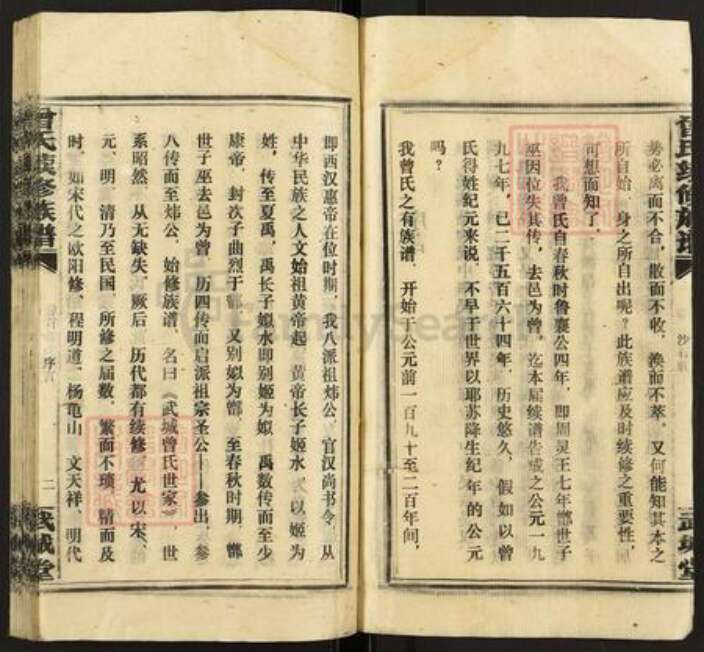 曾氏续修族谱
武城堂
势必离而不合,散而不收,涣而不萃,又何能知其本之
所自始,身之所自出呢?此族谱应及时续修之重要性,
可想而知了。
我曾氏自春秋时鲁襄公四年,即周灵王七年鄫世子
巫因位失其传,去邑为曾,迄本届续谱告成之公元一九
九七年,已二千五百六十四年,历史悠久,假如以曾
氏得姓纪元来说,不早于世界以耶苏降生纪年的公元
吗?
我曾氏之有族谱,开始于公元前一百九十至二百年间,
即西汉惠帝在位时期,我八派祖炜公,官汉尚书令,从
中华民族之人文始祖黄帝起,黄帝长子姬水,以姬为
姓,传至夏禹,禹长子姒水即别姬为姒,禹数传而至少
康帝,封次子曲烈于鄫,又别姒为鄫,至春秋时期,鄫
世子巫去邑为曾,历四传而启派祖宗圣公——参出,参
八传而至炜公,始修族谱,名曰《武城曾氏世家》,世
系昭然,从无缺失,厥后,历代都有续修,尤以宋、
元、明、清乃至民国,所修之届数,繁而不琐,精而及
时,如宋代之欧阳修、程明道、杨龟山、文天祥、明代
曾氏续修族谱
序言
二
武城堂
FamilySearch